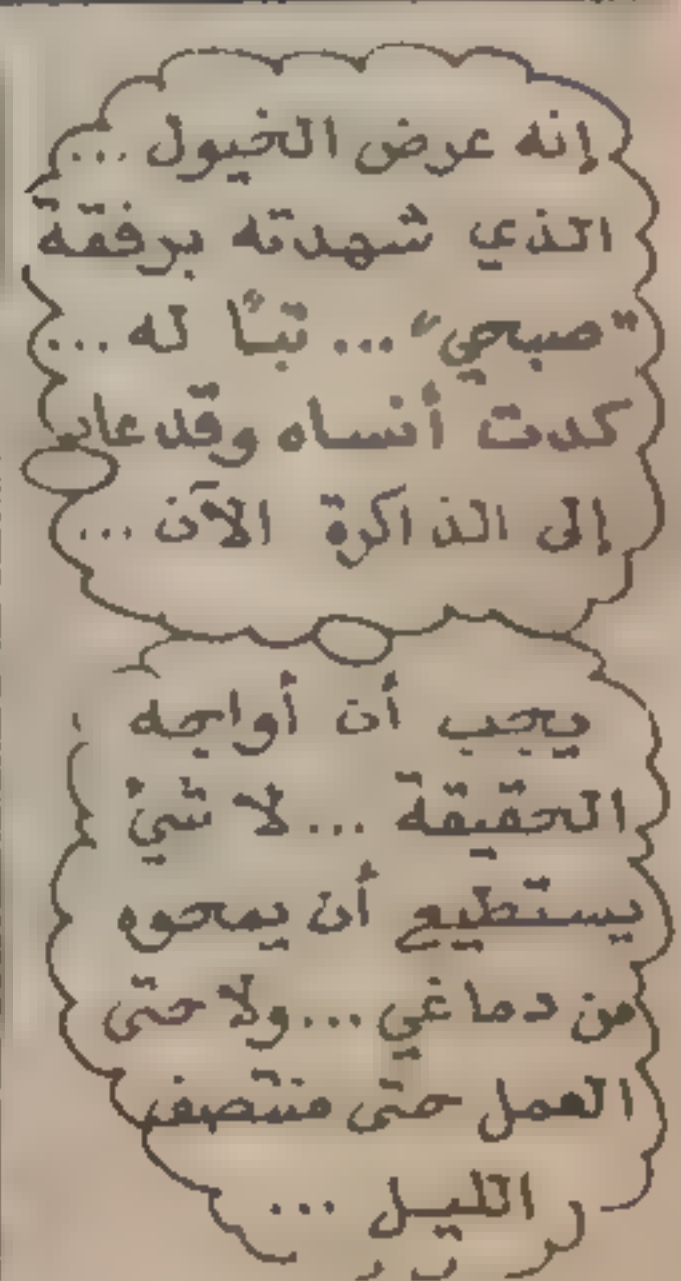 إنه عرض الخيول ...
الذي شهدته برفقة
"صبحي" ... تبًا له ...
كدت أنساه وقد عاد
إلى الذاكرة الآن ...
يجب أن أواجه
الحقيقة ... لا شيئ
يستطيع أن يمحوه
من دماغي ... ولا حتى
العمل حتى منتصف
الليل ...